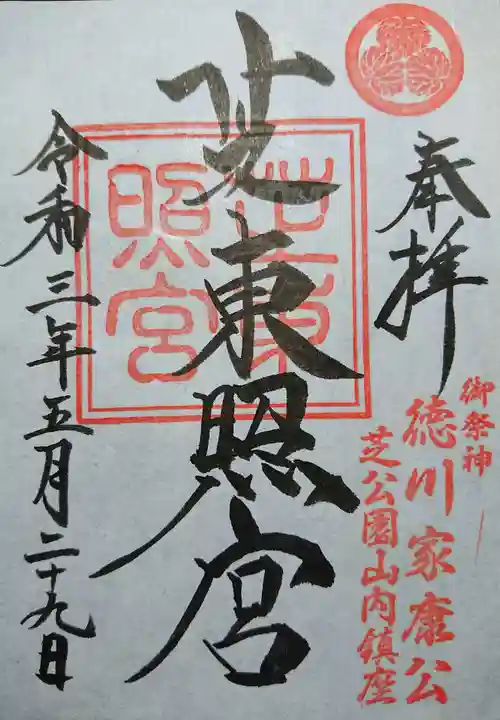 奉拝
御祭神
徳川家康公
芝公園山内鎮座
芝東照宮
芝東
照宮
令和三年五月二十九日